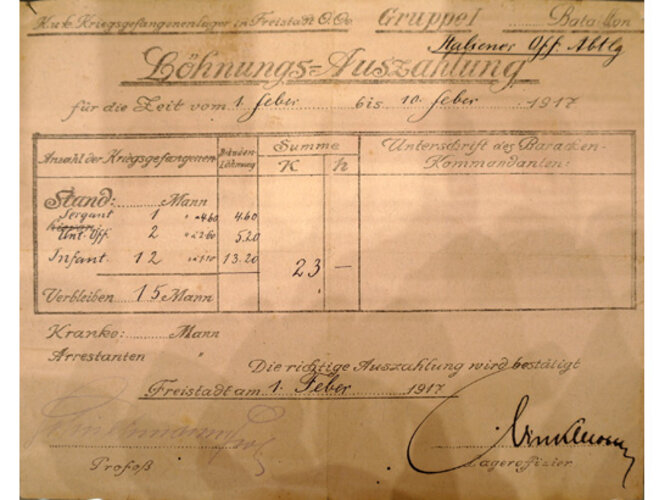 K.u.k. Kriegsgefangenenlager in Freistadt O.Oe. Gruppe I Bataillon
Italiener Off. Abtlg
Löhnungs-Auszahlung
für die Zeit vom 1. feber bis 10. feber 1917
Anzahl der Kriegsgefangenen Löhnung Summe K h Unterschrift des Baracken-Kommandanten:
Stand: Mann
Sergant 1 " à 4.60 4.60
Unt. Off. 2 " à 2.60 5.20
Infant. 12 " à 1.10 13.20
23 —
Verbleiben 15 Mann
Kranke: Mann
Arrestanten "
Die richtige Auszahlung wird bestätigt
Freistadt am 1. Feber 1917
Profoß Lageroffizier